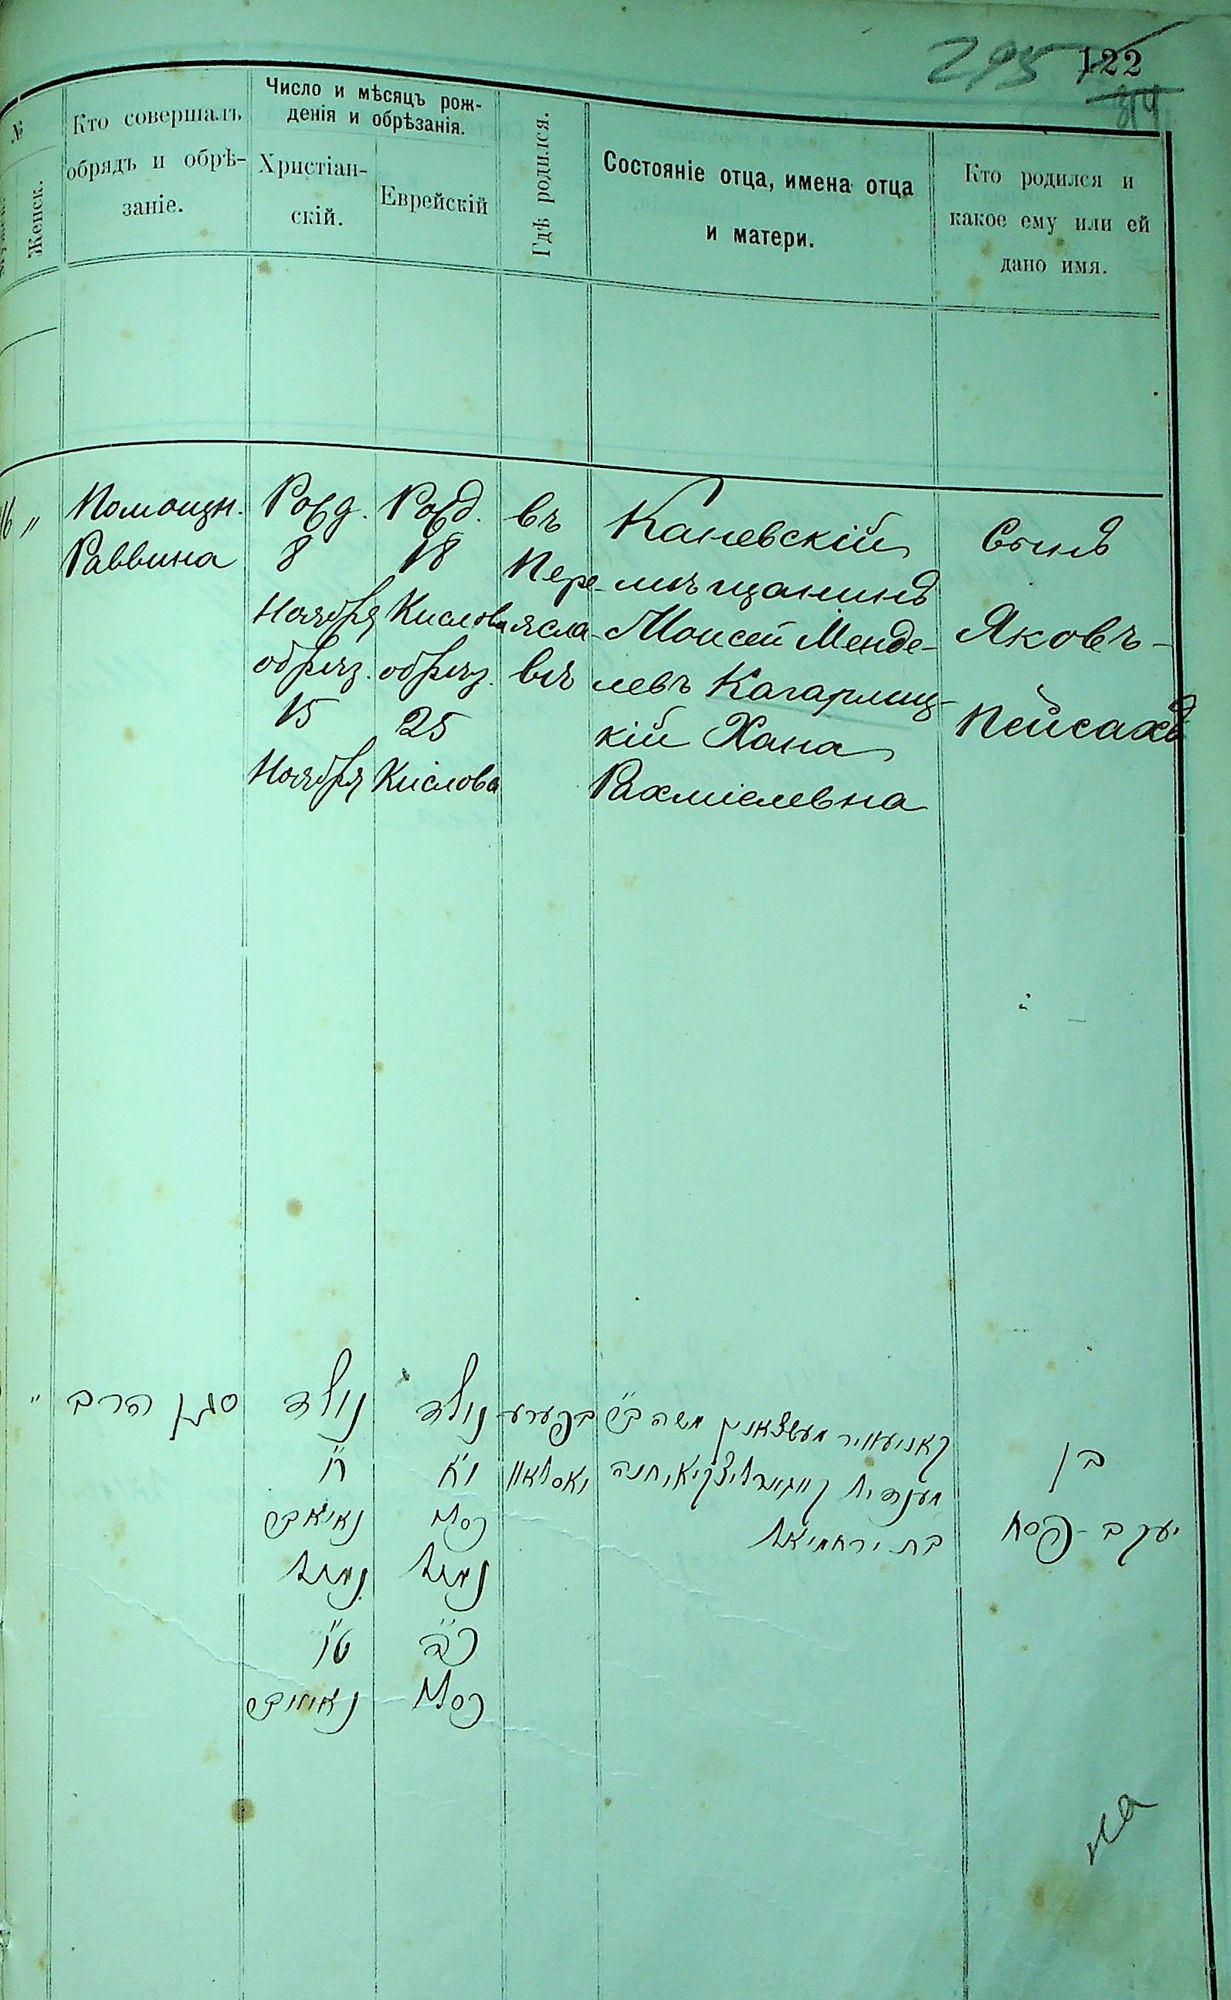 295 122
314
№
Женск.
Кто совершалъ
обрядъ и обрѣ-
заніе.
Число и мѣсяцъ рож-
денія и обрѣзанія.
Христіан-
скій.
Еврейскій
Гдѣ родился.
Состояніе отца, имена отца
и матери.
Кто родился и
какое ему или ей
дано имя.
16 "
Помощн.
Раввина
Рожд.
8
Ноября
обрѣз.
15
Ноября
Рожд.
18
Кислова
обрѣз.
25
Кислова
въ
Пере-
ясла-
вѣ
Каневскій
мѣщанинъ
Моисей Менде-
левъ Кагарлиц-
кій Хана
Рахміелевна
Сынъ
Яковъ-
Пейсахъ
"
סגן הרב
נולד
ח"
נאיאבר
נמול
ט"ו
נולד
ח"י
כסלו
נמול
כ"ה
כסלו
בפערע
יאסלאוו
משה
וחנה
בת ירחמיאל
בן
יעקב-פסח
на